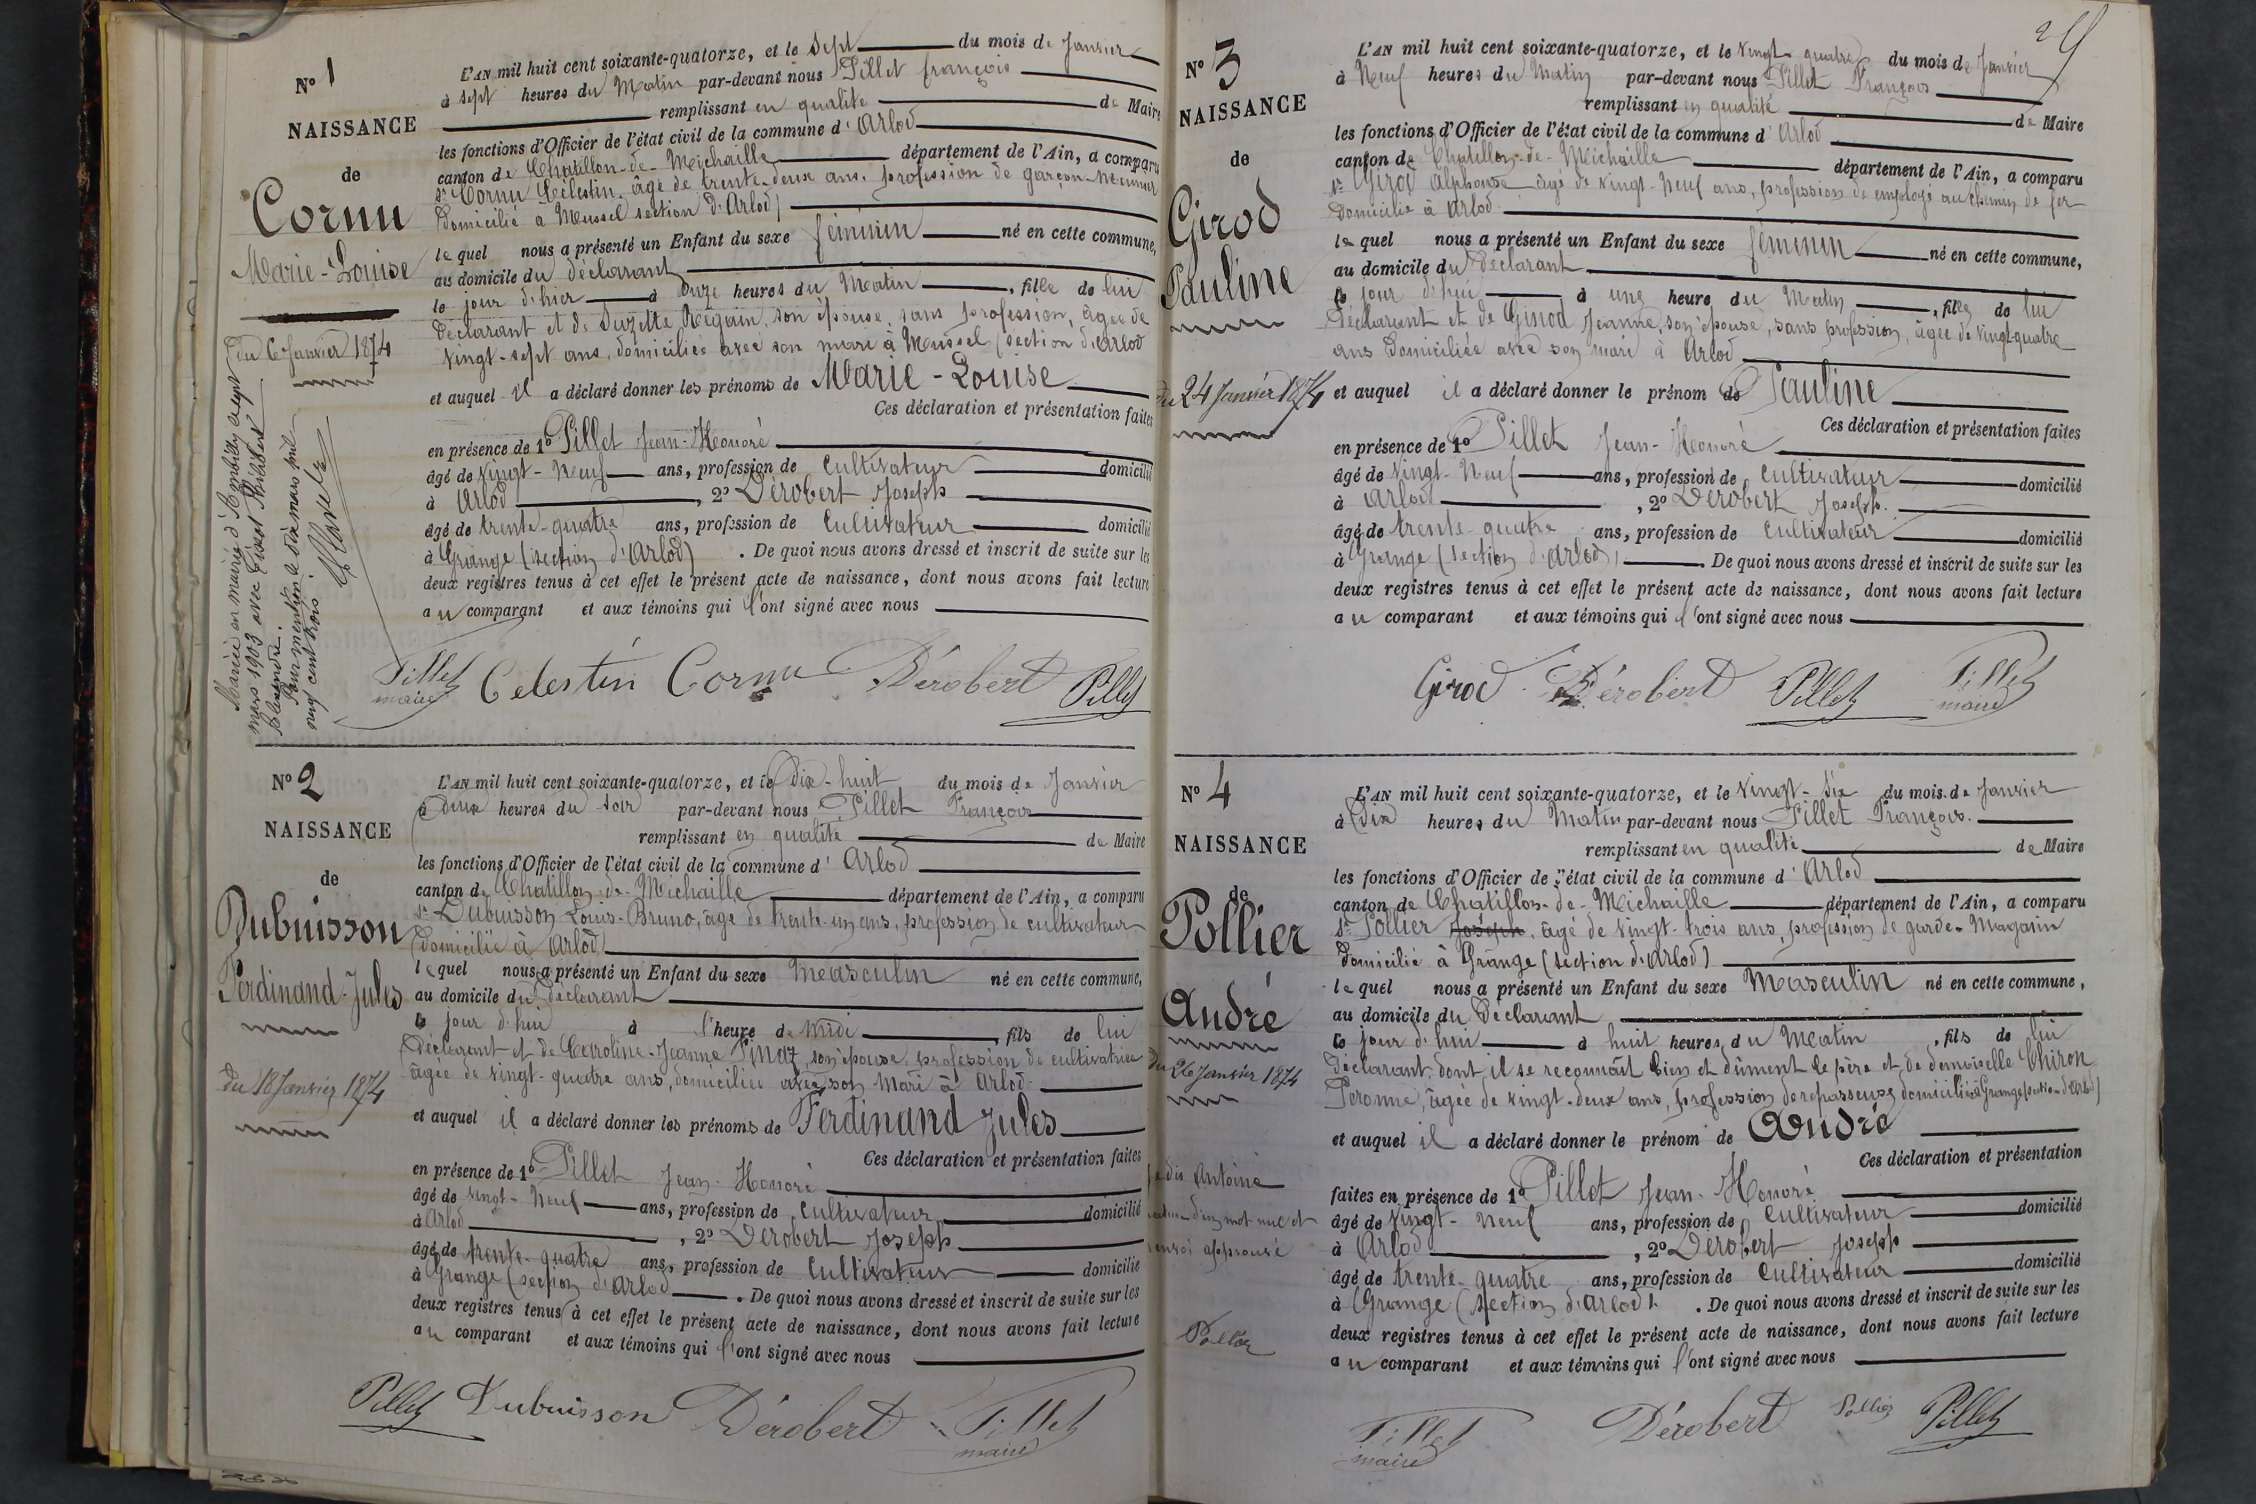 N° 1
NAISSANCE
de
Cornu
Marie-Louise
du 6 Janvier 1874
Mariée en mairie d'Ambérieu
mars 1903 avec
Pour mention le dix mars mil
neuf cent trois.
L'AN mil huit cent soixante-quatorze, et le Sept du mois de Janvier
à sept heures du Matin par-devant nous Pillet françois
remplissant en qualité de Maire
les fonctions d'Officier de l'état civil de la commune d' Arlod
canton de Chatillon-de-Michaille département de l'Ain, a comparu
sr Cornu Célestin, âgé de trente-deux ans, profession de garçon-meunier
domicilié à Mussel section d'Arlod)
le quel nous a présenté un Enfant du sexe féminin né en cette commune,
au domicile du déclarant
le jour d'hier à onze heures du Matin, fille de lui
déclarant et de Suzette Régain, son épouse, sans profession, âgée de
vingt-sept ans, domiciliée avec son mari à Mussel (section d'Arlod
et auquel il a déclaré donner les prénoms de Marie-Louise
Ces déclaration et présentation faites
en présence de 1° Pillet Jean-Honoré
âgé de vingt-neuf ans, profession de Cultivateur domicilié
à Arlod, 2° Dérobert Joseph
âgé de trente-quatre ans, profession de Cultivateur domicilié
à Grange (section d'Arlod). De quoi nous avons dressé et inscrit de suite sur les
deux registres tenus à cet effet le présent acte de naissance, dont nous avons fait lecture
au comparant et aux témoins qui l'ont signé avec nous
Pillet maire Celestin Cornu Dérobert Pillet
N° 2
NAISSANCE
de
Dubuisson
Ferdinand-Jules
du 18 Janvier 1874
L'AN mil huit cent soixante-quatorze, et le dix-huit du mois de Janvier
à deux heures du soir par-devant nous Pillet François
remplissant en qualité de Maire
les fonctions d'Officier de l'état civil de la commune d' Arlod
canton de Chatillon-de-Michaille département de l'Ain, a comparu
sr Dubuisson Louis-Bruno, âgé de trente-un ans, profession de cultivateur
domicilié à Arlod)
le quel nous a présenté un Enfant du sexe Masculin né en cette commune,
au domicile du déclarant
le jour d'hui à l'heure de midi, fils de lui
déclarant et de Caroline-Jeanne Pinaz, son épouse, profession de cultivatrice
âgée de vingt-quatre ans, domiciliée avec son mari à Arlod.
et auquel il a déclaré donner les prénoms de Ferdinand Jules
Ces déclaration et présentation faites
en présence de 1° Pillet Jean-Honoré
âgé de vingt-neuf ans, profession de Cultivateur domicilié
à Arlod, 2° Dérobert Joseph
âgé de trente-quatre ans, profession de Cultivateur domicilié
à Grange (section d'Arlod. De quoi nous avons dressé et inscrit de suite sur les
deux registres tenus à cet effet le présent acte de naissance, dont nous avons fait lecture
au comparant et aux témoins qui l'ont signé avec nous
Pillet Dubuisson Dérobert Pillet maire
N° 3
NAISSANCE
de
Girod
Pauline
du 24 Janvier 1874
L'AN mil huit cent soixante-quatorze, et le vingt quatre du mois de Janvier
à Neuf heures du Matin par-devant nous Pillet François
remplissant en qualité de Maire
les fonctions d'Officier de l'état civil de la commune d' Arlod
canton de Chatillon-de-Michaille département de l'Ain, a comparu
sr Girod Alphonse âgé de vingt-neuf ans, profession de employé au chemin de fer
domicilié à Arlod.
le quel nous a présenté un Enfant du sexe féminin né en cette commune,
au domicile du déclarant
le jour d'hui à une heure du Matin, fille de lui
déclarant et de Ginod Jeanne, son épouse, sans profession, âgée de vingt-quatre
ans domiciliée avec son mari à Arlod
et auquel il a déclaré donner le prénom de Pauline
Ces déclaration et présentation faites
en présence de 1° Pillet Jean-Honoré
âgé de vingt-neuf ans, profession de Cultivateur domicilié
à Arlod, 2° Dérobert Joseph.
âgé de trente-quatre ans, profession de Cultivateur domicilié
à Grange (section d'Arlod). De quoi nous avons dressé et inscrit de suite sur les
deux registres tenus à cet effet le présent acte de naissance, dont nous avons fait lecture
au comparant et aux témoins qui l'ont signé avec nous
Girod Dérobert Pillet Pillet maire
N° 4
NAISSANCE
de
Pollier
André
du 26 Janvier 1874
je dis Antoine
d'un mot nul et
renvoi approuvé
Pollier
L'AN mil huit cent soixante-quatorze, et le vingt-six du mois de Janvier
à Dix heures du Matin par-devant nous Pillet François.
remplissant en qualité de Maire
les fonctions d'Officier de l'état civil de la commune d' Arlod
canton de Chatillon-de-Michaille département de l'Ain, a comparu
sr Pollier Joseph, âgé de vingt-trois ans, profession de garde-Magasin
domicilié à Grange (section d'Arlod)
le quel nous a présenté un Enfant du sexe Masculin né en cette commune,
au domicile du déclarant
le jour d'hui à huit heures du Matin, fils de lui
déclarant, dont il se reconnaît bien et dûment le père et de demoiselle Chiron
Péronne, âgée de vingt-deux ans, profession de repasseuse domiciliée à Grange (section d'Arlod)
et auquel il a déclaré donner le prénom de André
Ces déclaration et présentation
faites en présence de 1° Pillet Jean-Honoré
âgé de vingt-neuf ans, profession de Cultivateur domicilié
à Arlod, 2° Dérobert Joseph
âgé de trente-quatre ans, profession de Cultivateur domicilié
à Grange (section d'Arlod). De quoi nous avons dressé et inscrit de suite sur les
deux registres tenus à cet effet le présent acte de naissance, dont nous avons fait lecture
au comparant et aux témoins qui l'ont signé avec nous
Pillet maire Dérobert Pollier Pillet